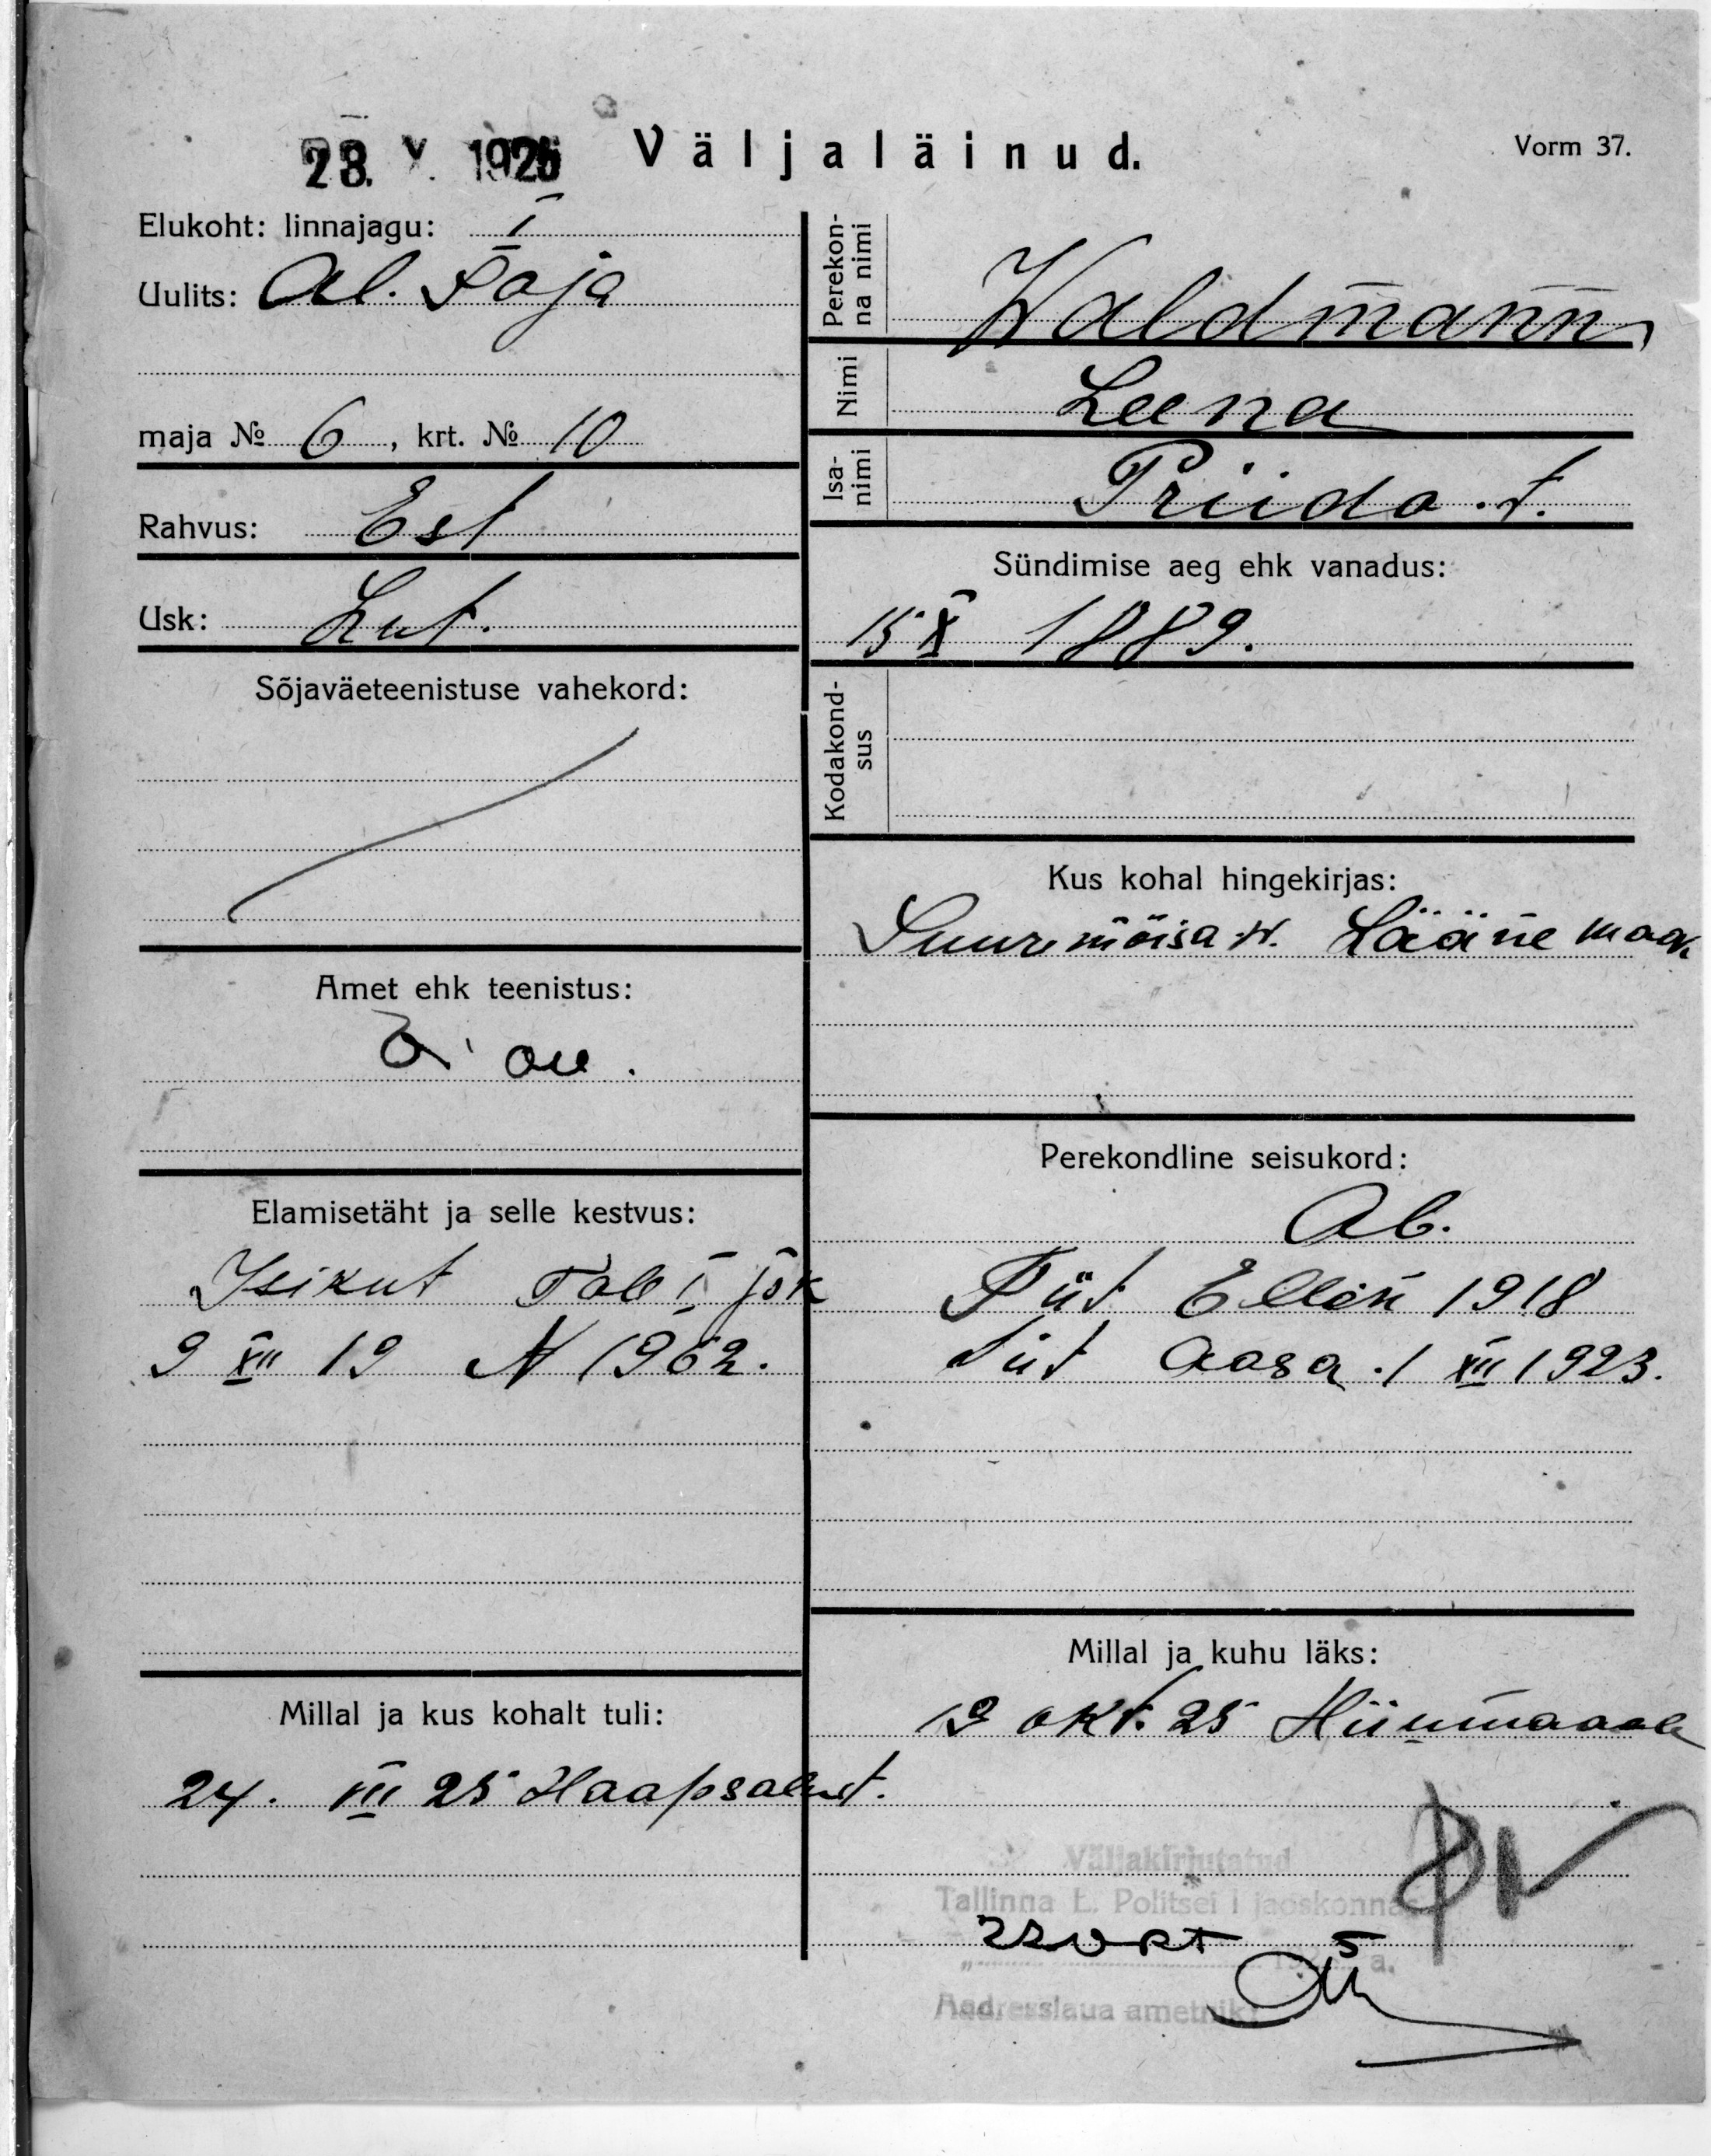 28. X. 1925 Väljaläinud. Vorm 37.
Elukoht: linnajagu: I
Uulits: Al. Roja
maja № 6, krt. № 10
Rahvus: Est
Usk: Lut.
Sõjaväeteenistuse vahekord:
Amet ehk teenistus:
Ei ole.
Elamisetäht ja selle kestvus:
Isikut Tall I jsk
9 XII 19 N 1962.
Millal ja kus kohalt tuli:
24. VIII 25 Haapsalust.
Perekonna nimi Waldmann
Nimi Leena
Isanimi Priido t.
Sündimise aeg ehk vanadus:
15 X 1889.
Kodakondsus
Kus kohal hingekirjas:
Suuremõisa w. Lääne maak
Perekondline seisukord:
Ab.
Tüt Ellen 1918
Tüt Aasa 1 XII 1923.
Millal ja kuhu läks:
19 okt. 25 Hiiumaale
Väljakirjutatud
Tallinna L. Politsei I jaoskonnas
22 okt 5 a.
Aadresslaua ametnik